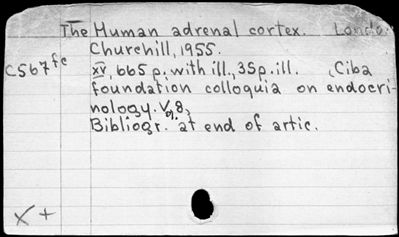 The Human adrenal cortex. Londo
Churchill, 1955.
C567fc xv, 665 p. with ill., 35p. ill. (Ciba
foundation colloquia on endocri-
nology. V. 8,
Bibliogr. at end of artic.
X +